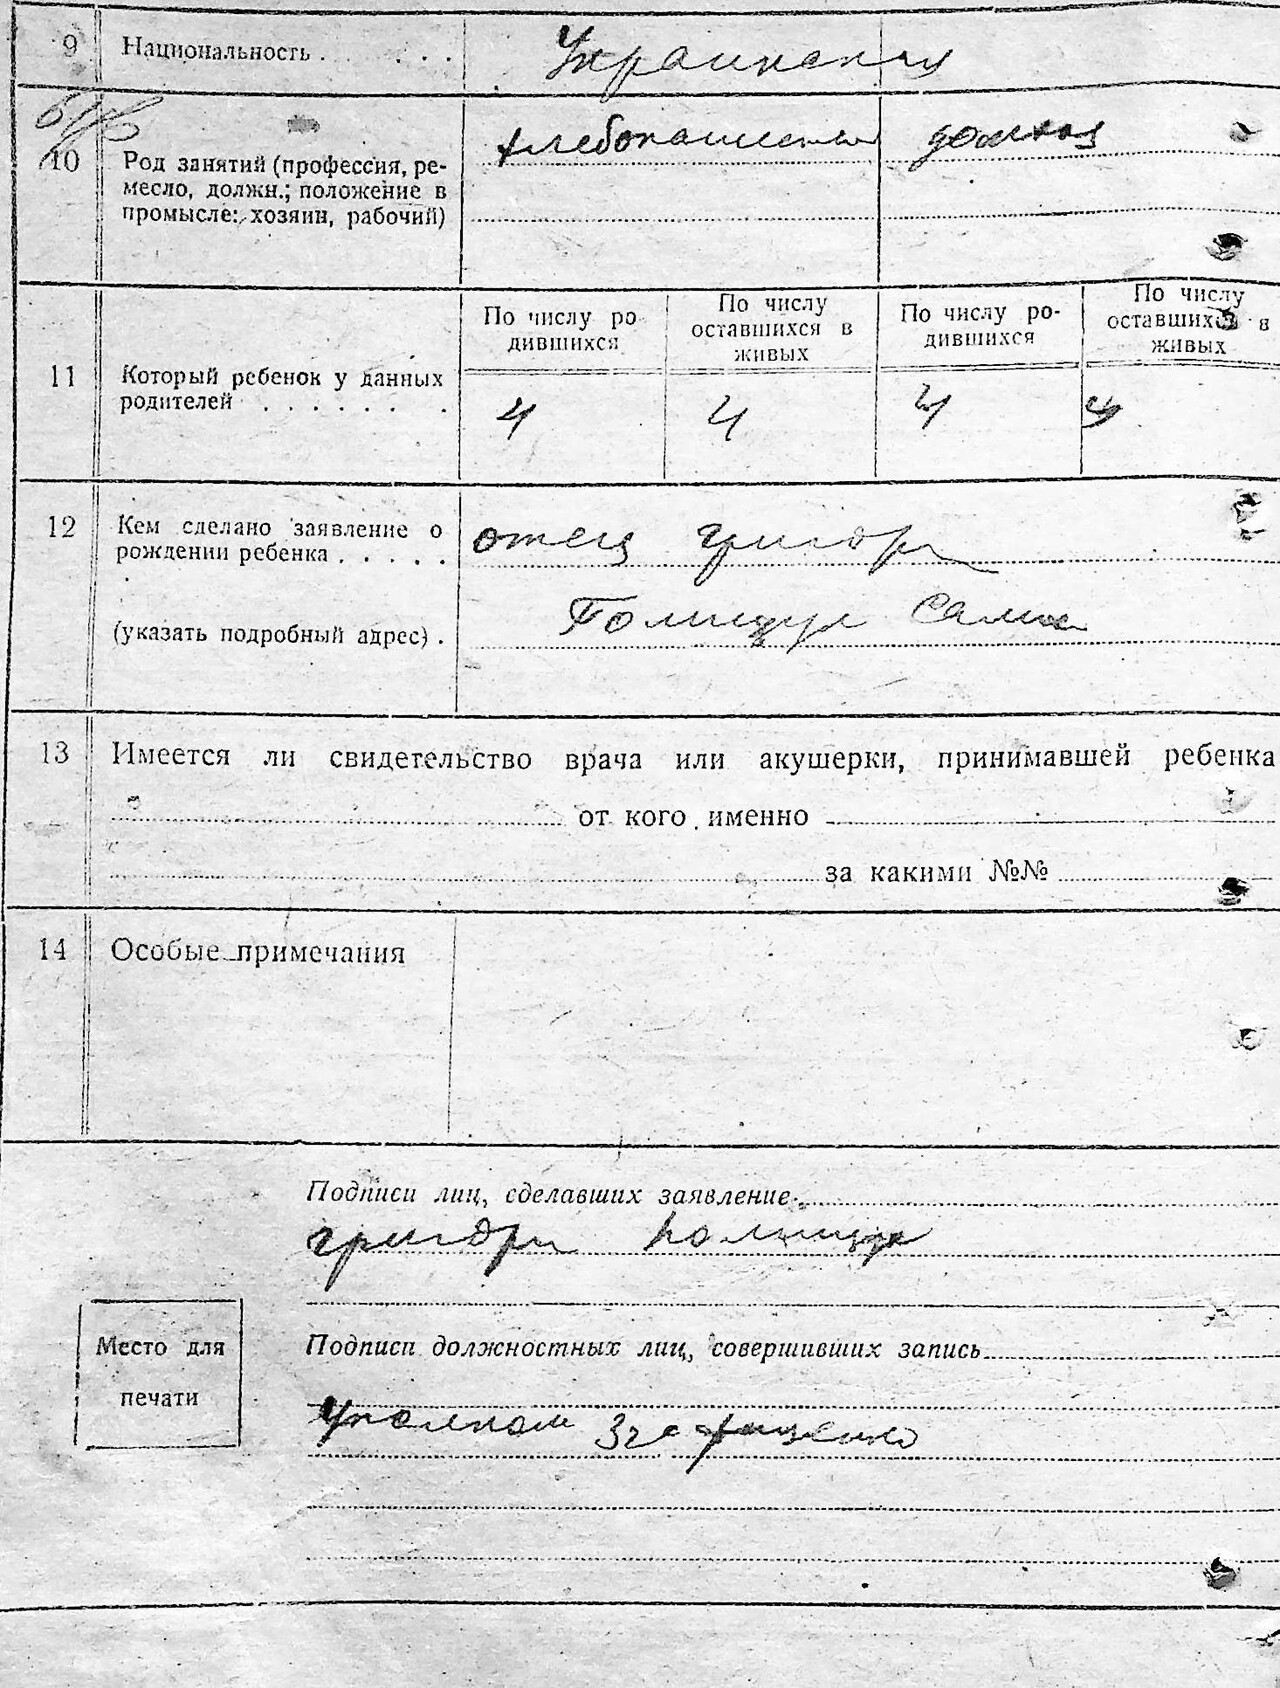 9 Национальность . . . . . Украинская
10 Род занятий (профессия, ре- хлебопашество домхоз
месло, должн.; положение в
промысле: хозяин, рабочий)
По числу ро
дившихся
По числу
оставшихся в
живых
По числу ро-
дившихся
По числу
оставшихся в
живых
11 Который ребенок у данных
родителей . . . . . . .
4 4 4 4
12 Кем сделано заявление о отец Григори
рождении ребенка . . . . .
(указать подробный адрес) .
13 Имеется ли свидетельство врача или акушерки, принимавшей ребенка
от кого именно
за какими №№
14 Особые примечания
Подписи лиц, сделавших заявление
григори
Место для
печати
Подписи должностных лиц, совершивших запись